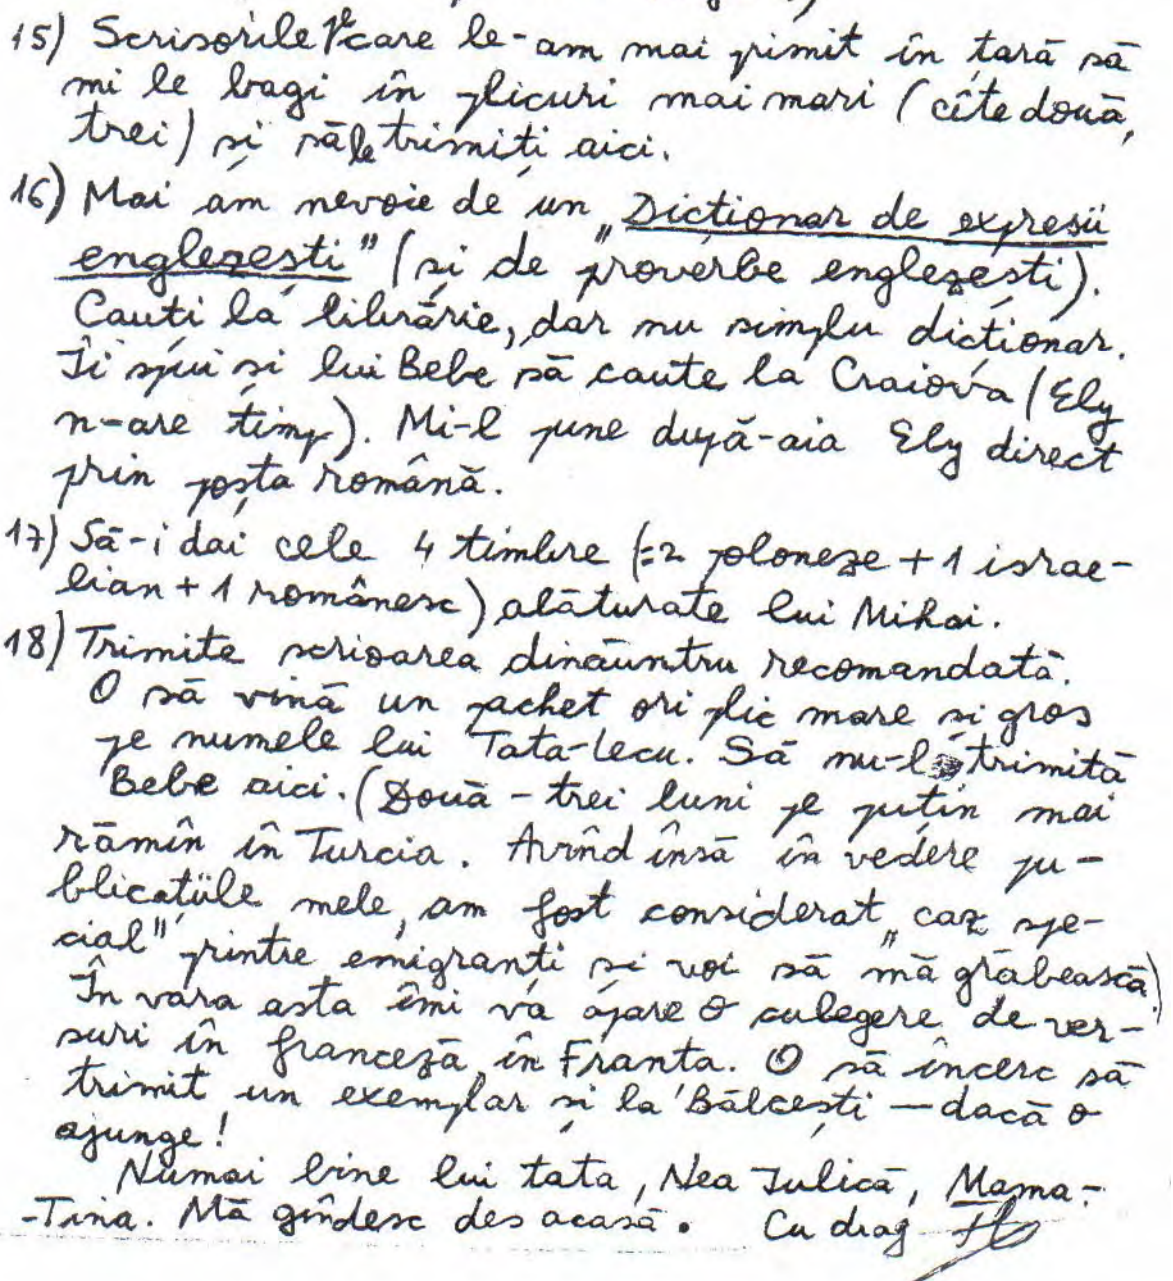 15) Scrisorile pe care le-am mai primit în țară să
mi le bagi în plicuri mai mari (cîte două,
trei) și să le trimiți aici.
16) Mai am nevoie de un „Dicționar de expresii
englezești" (și de proverbe englezești).
Cauți la librărie, dar nu simplu dicționar.
Îi spui și lui Bebe să caute la Craiova (Ely
n-are timp). Mi-l pune după-aia Ely direct
prin poșta română.
17) Să-i dai cele 4 timbre (=2 poloneze + 1 israe-
lian + 1 românesc) alăturate lui Mihai.
18) Trimite scrioarea dinăuntru recomandată.
O să vină un pachet ori plic mare și gros
pe numele lui Tata-Lecu. Să nu-l trimită
Bebe aici. (Două - trei luni pe puțin mai
rămîn în Turcia. Avînd însă în vedere pu-
blicațiile mele, am fost considerat „caz spe-
cial" printre emigranți și voi să mă grăbească)
În vara asta îmi va apare o culegere de ver-
suri în franceză, în Franța. O să încerc să
trimit un exemplar și la Bălcești — dacă o
ajunge!
Numai bine lui tata, Nea Iulică, Mama-
-Tina. Mă gîndesc des acasă. Cu drag